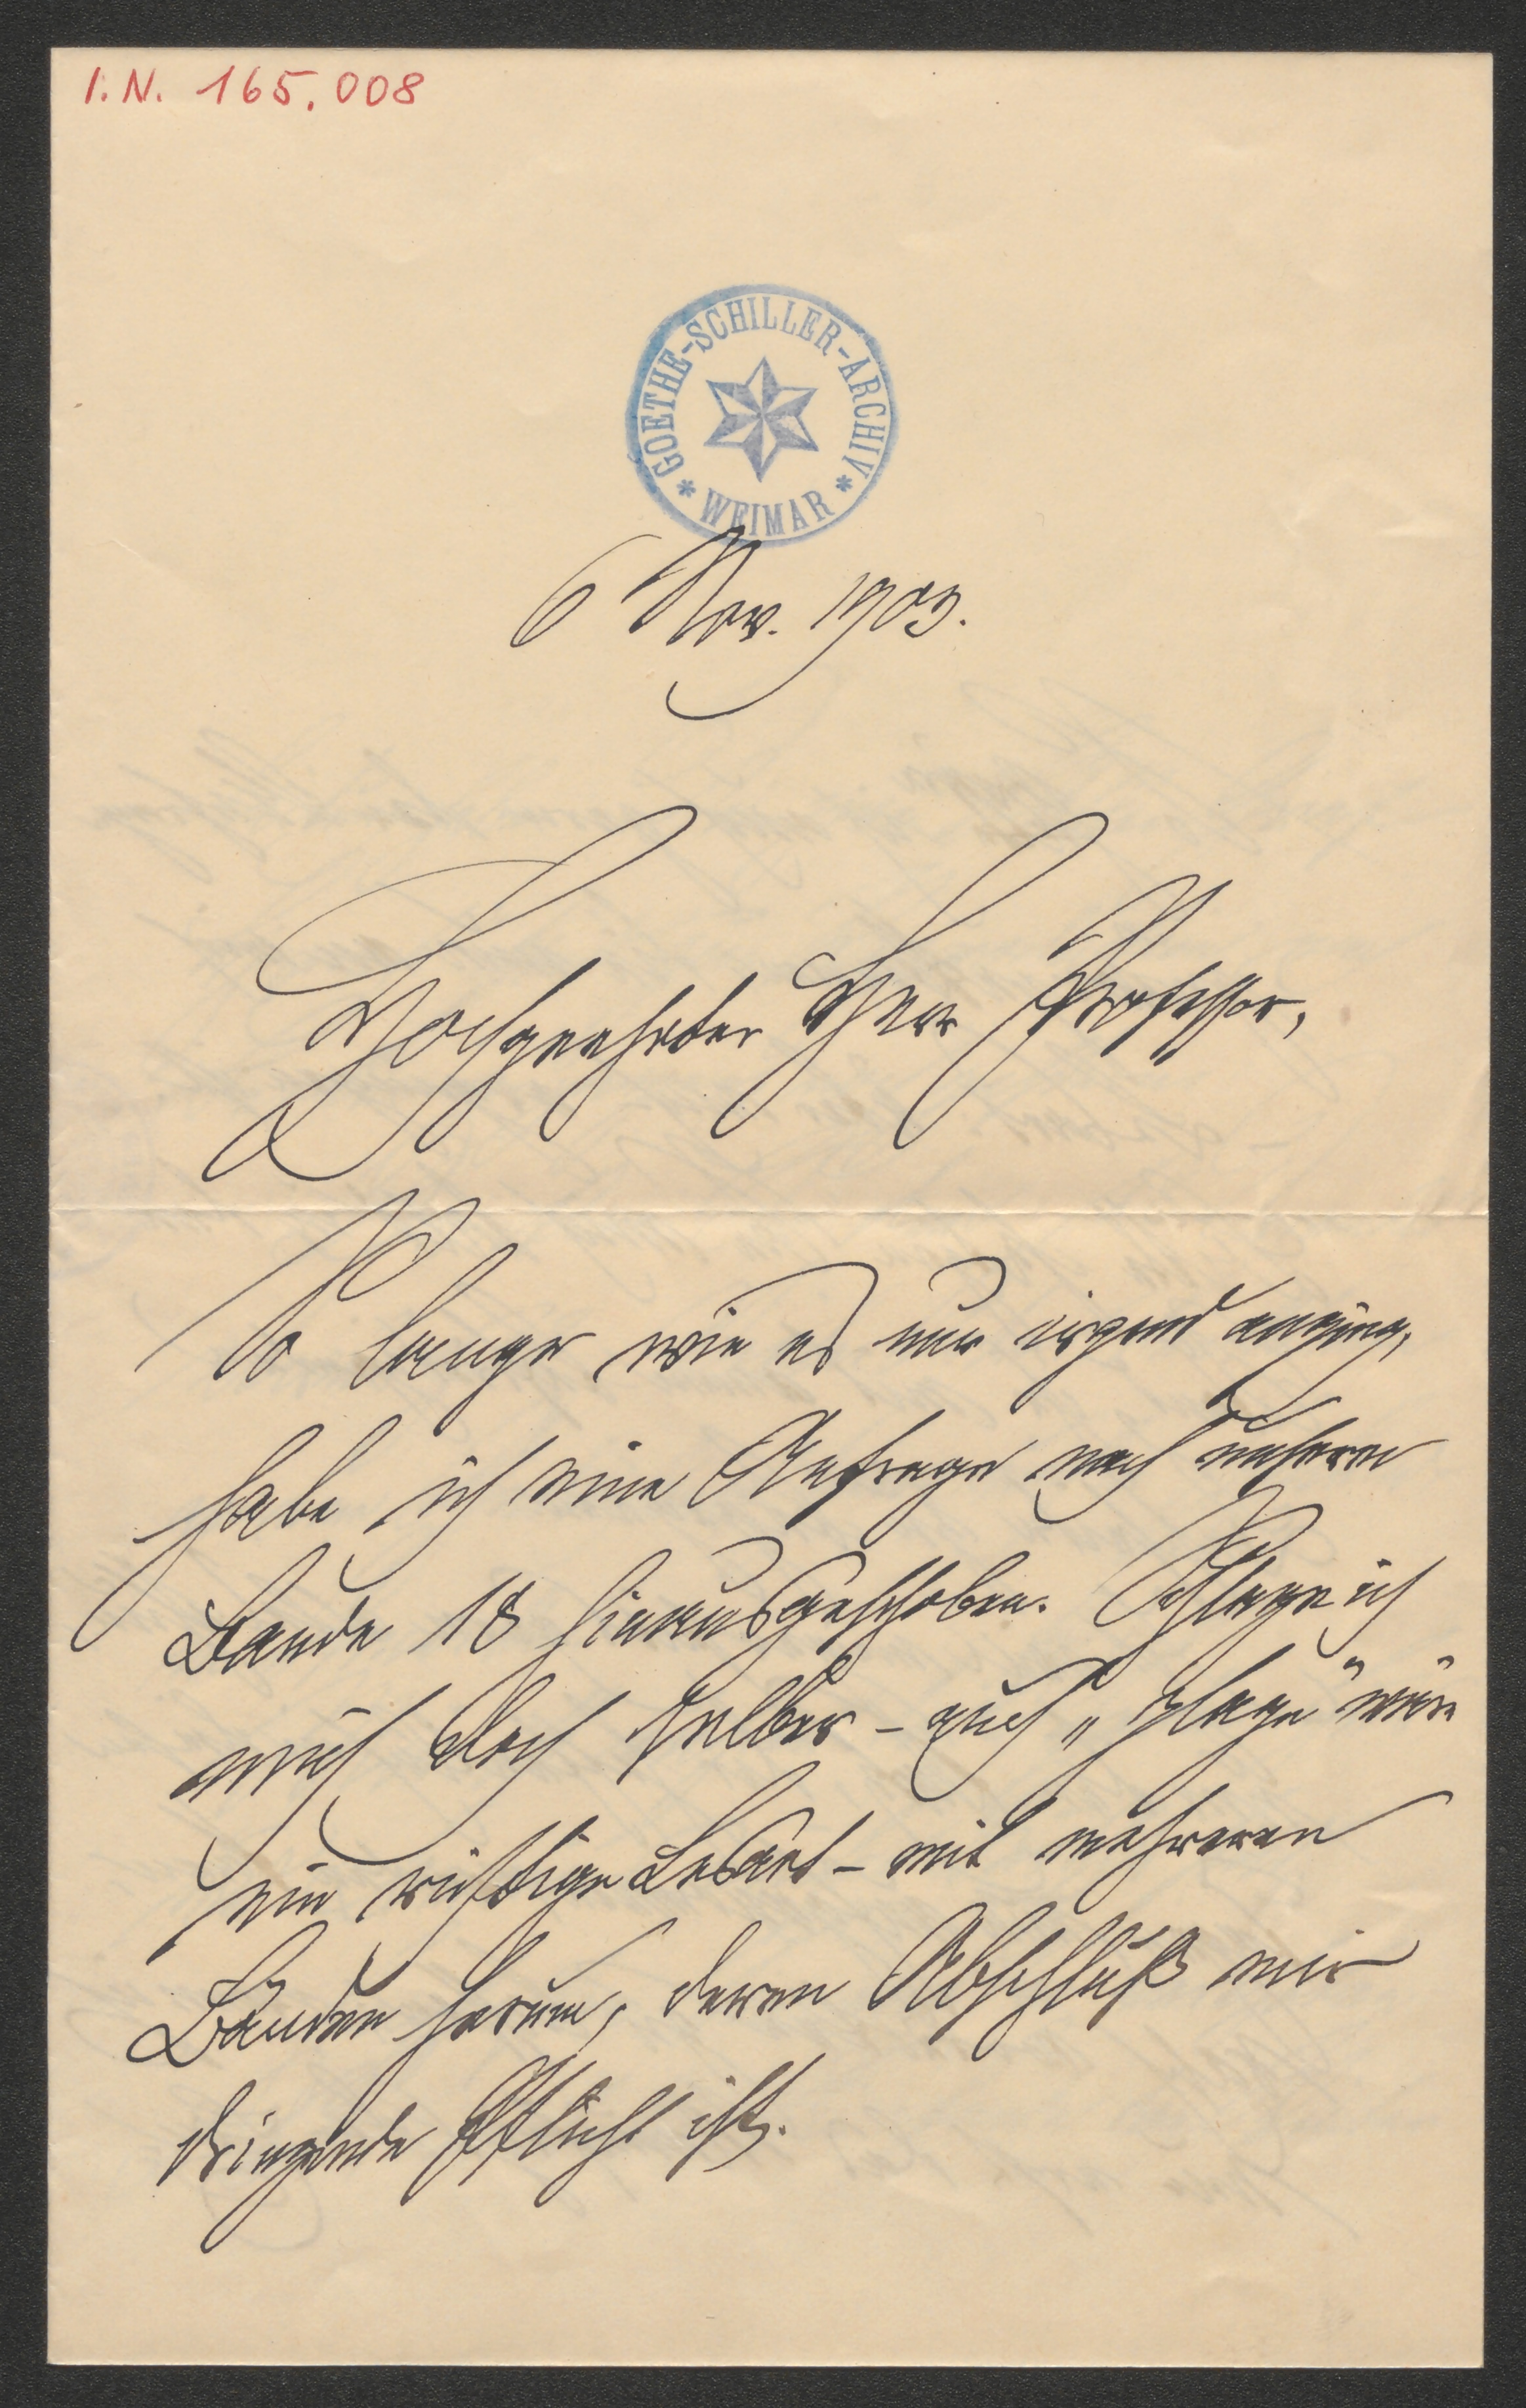 I. N. 165.008
GOETHE-SCHILLER-ARCHIV
* WEIMAR *
6 Nov. 1903.
Hochgeehrter Herr Professor,
So lange wie es nur irgend anging,
habe ich eine Anfrage nach unserem
Bande 18 hinausgeschoben. Schlage ich
mich doch selber – auch „plage“ wäre
eine richtige Lesart – mit mehreren
Bänden herum, deren Abschluß mir
dringende Pflicht ist.